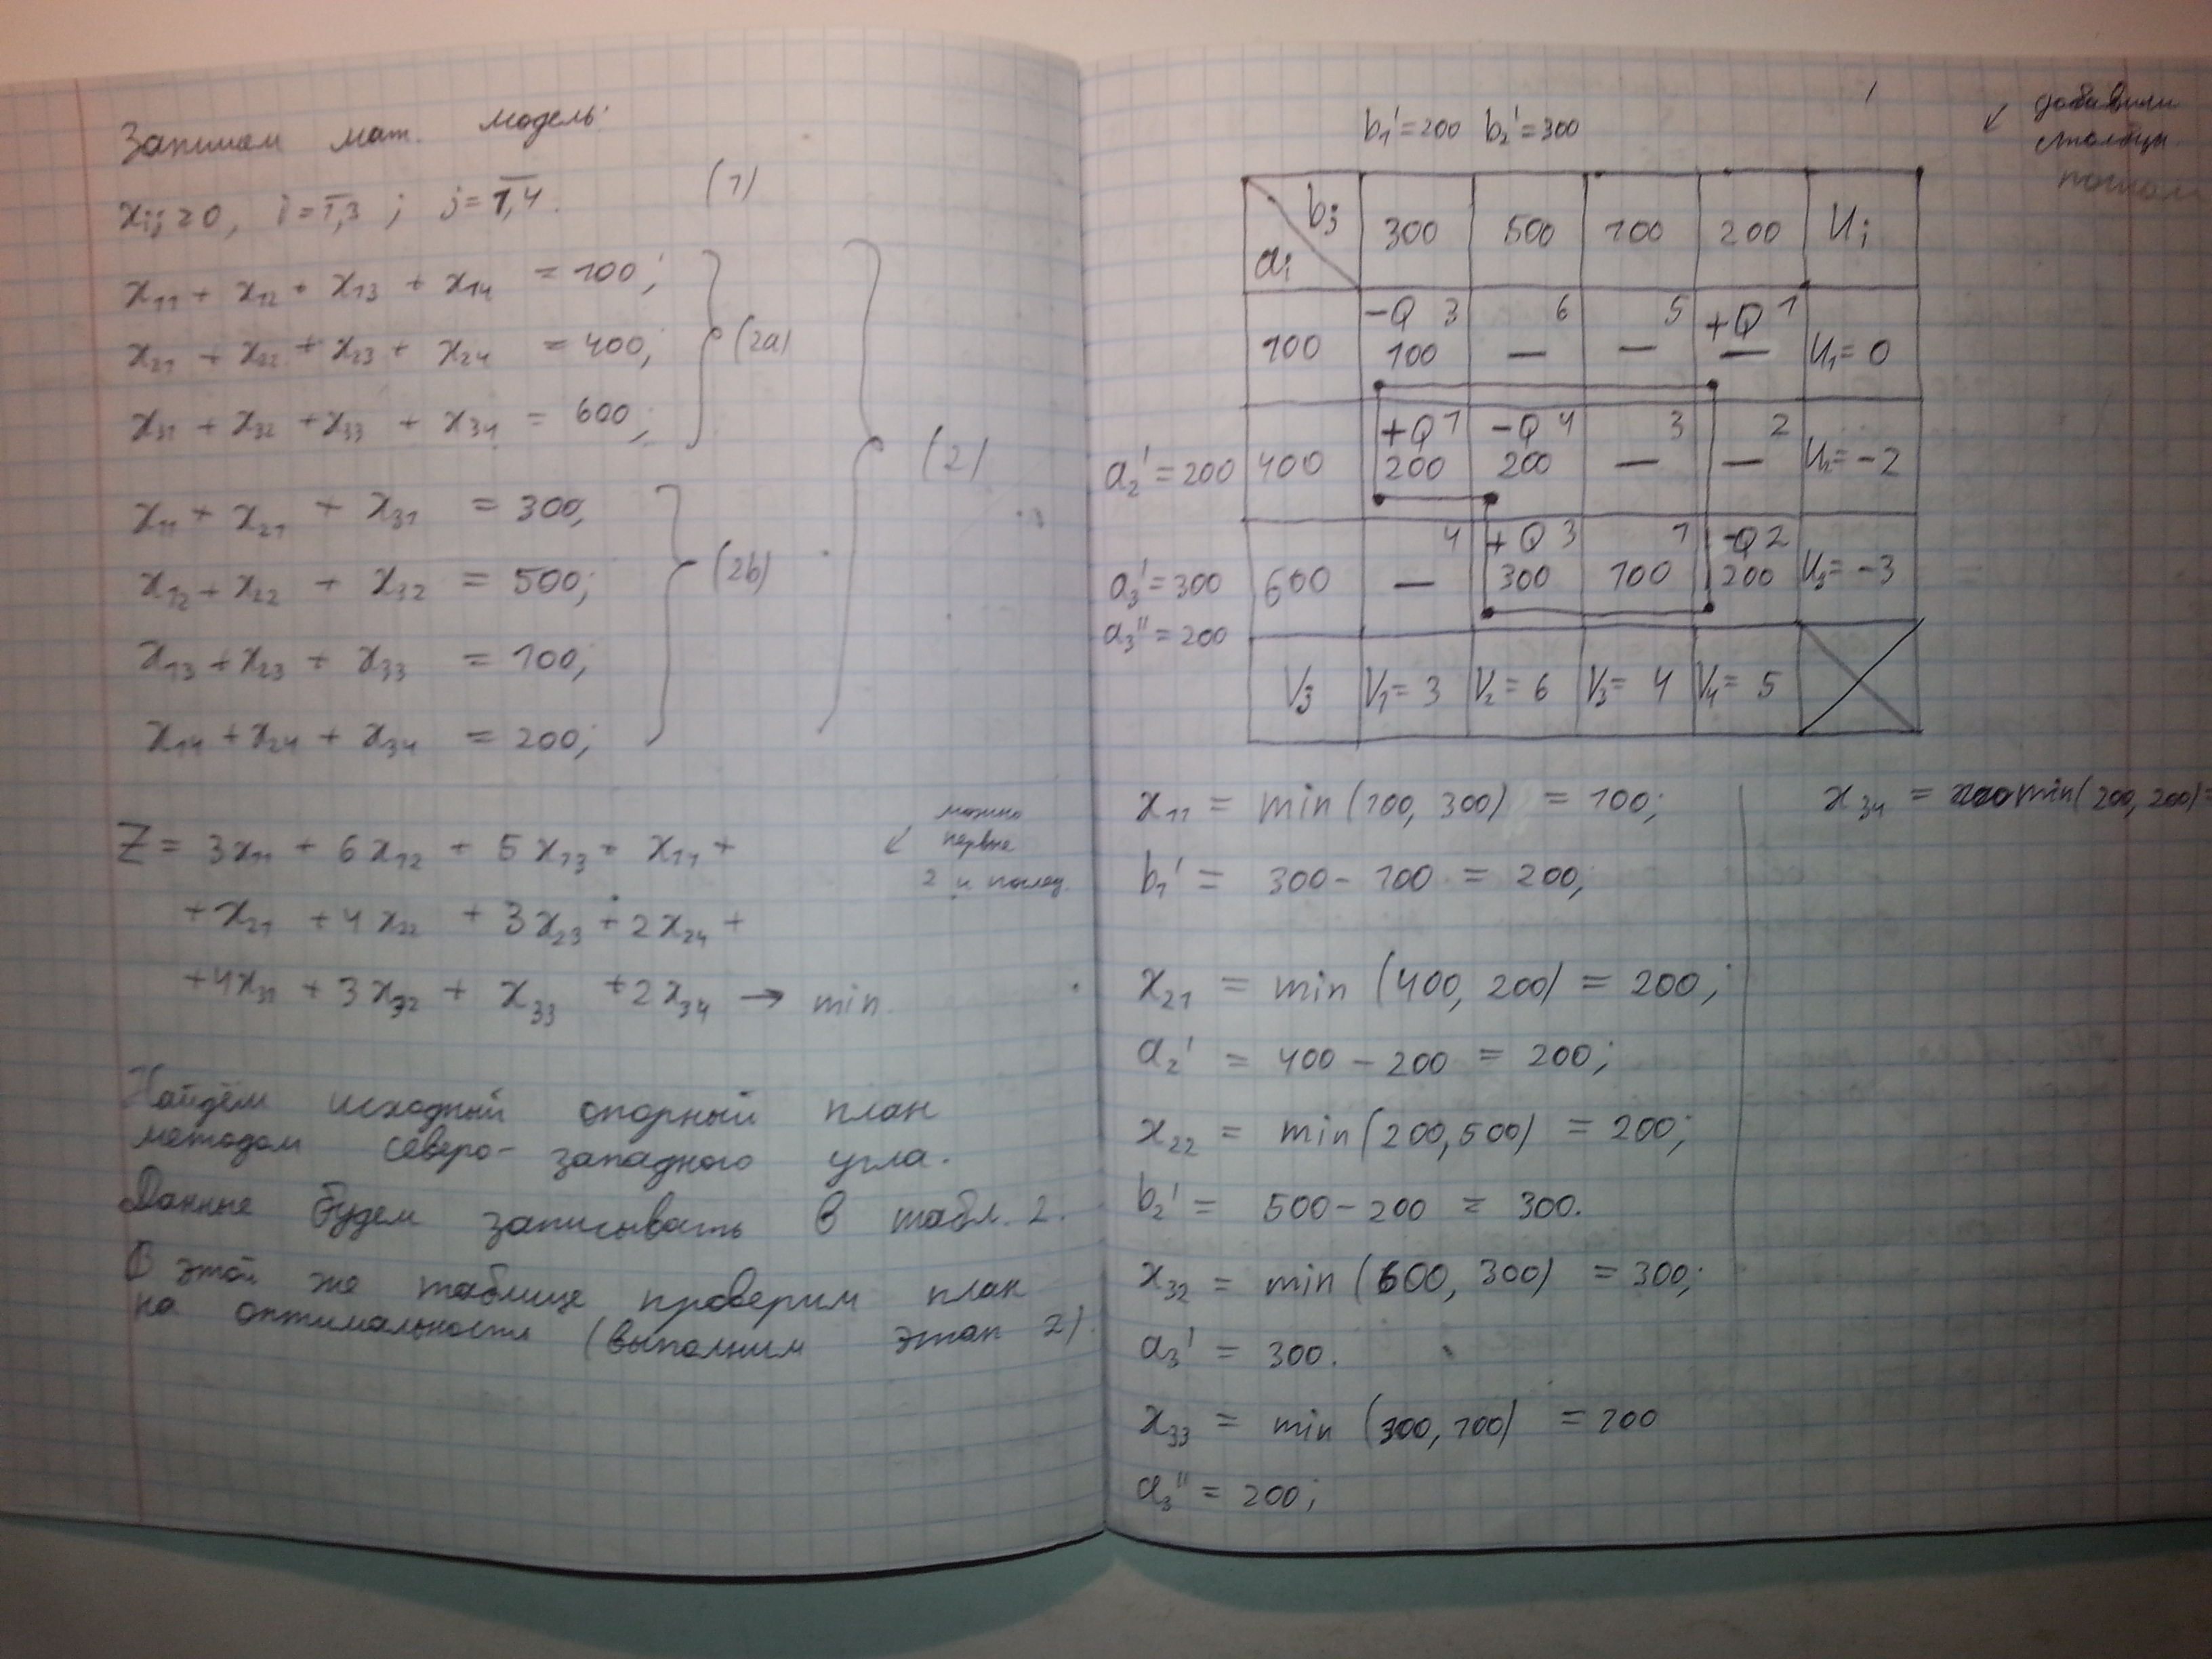 Запишем мат. модель:
xij ≥ 0, i = 1,3 ; j = 1,4. (1)
x11 + x12 + x13 + x14 = 100;
x21 + x22 + x23 + x24 = 400; (2a)
x31 + x32 + x33 + x34 = 600;
(2)
x11 + x21 + x31 = 300,
x12 + x22 + x32 = 500; (2b)
x13 + x23 + x33 = 100;
x14 + x24 + x34 = 200;
можно
первые
2 и послед.
Z = 3x11 + 6x12 + 5x13 + x14 +
+ x21 + 4x22 + 3x23 + 2x24 +
+ 4x31 + 3x32 + x33 + 2x34 → min.
Найдём исходный опорный план
методом северо-западного угла.
Данные будем записывать в табл. 2.
В этой же таблице проверим план
на оптимальность (выполним этап 2).
добавим
столбцы
потом
b1' = 200 b2' = 300
bj ai 300 500 100 200 Ui
-Q 3 6 5 +Q 1
100 100 — — — U1 = 0
+Q 1 -Q 4 3 2
a2' = 200 400 200 200 — — U2 = -2
4 +Q 3 1 -Q 2
a3' = 300 600 — 300 100 200 U3 = -3
a3'' = 200
V3 V1 = 3 V2 = 6 V3 = 4 V4 = 5
x11 = min (100, 300) = 100;
b1' = 300 - 100 = 200;
x21 = min (400, 200) = 200;
a2' = 400 - 200 = 200;
x22 = min (200, 500) = 200;
b2' = 500 - 200 = 300.
x32 = min (600, 300) = 300;
a3' = 300.
x33 = min (300, 100) = 100
a3'' = 200;
x34 = min (200, 200) =